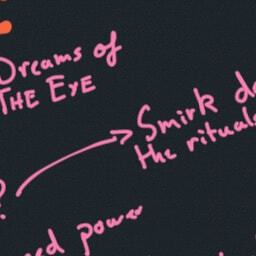 Dreams of
THE EYE
Smirk
the rituals
?
power